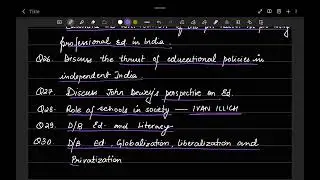 Title
professional Ed in India.
Q26. Discuss the thrust of educational policies in
independent India.
Q27. Discuss John Dewey's perspective on Ed.
Q28. Role of schools in society - IVAN ILLICH
Q29. D/B Ed and Literacy
Q30. D/B Ed, Globalization, Liberalization and
Privatization